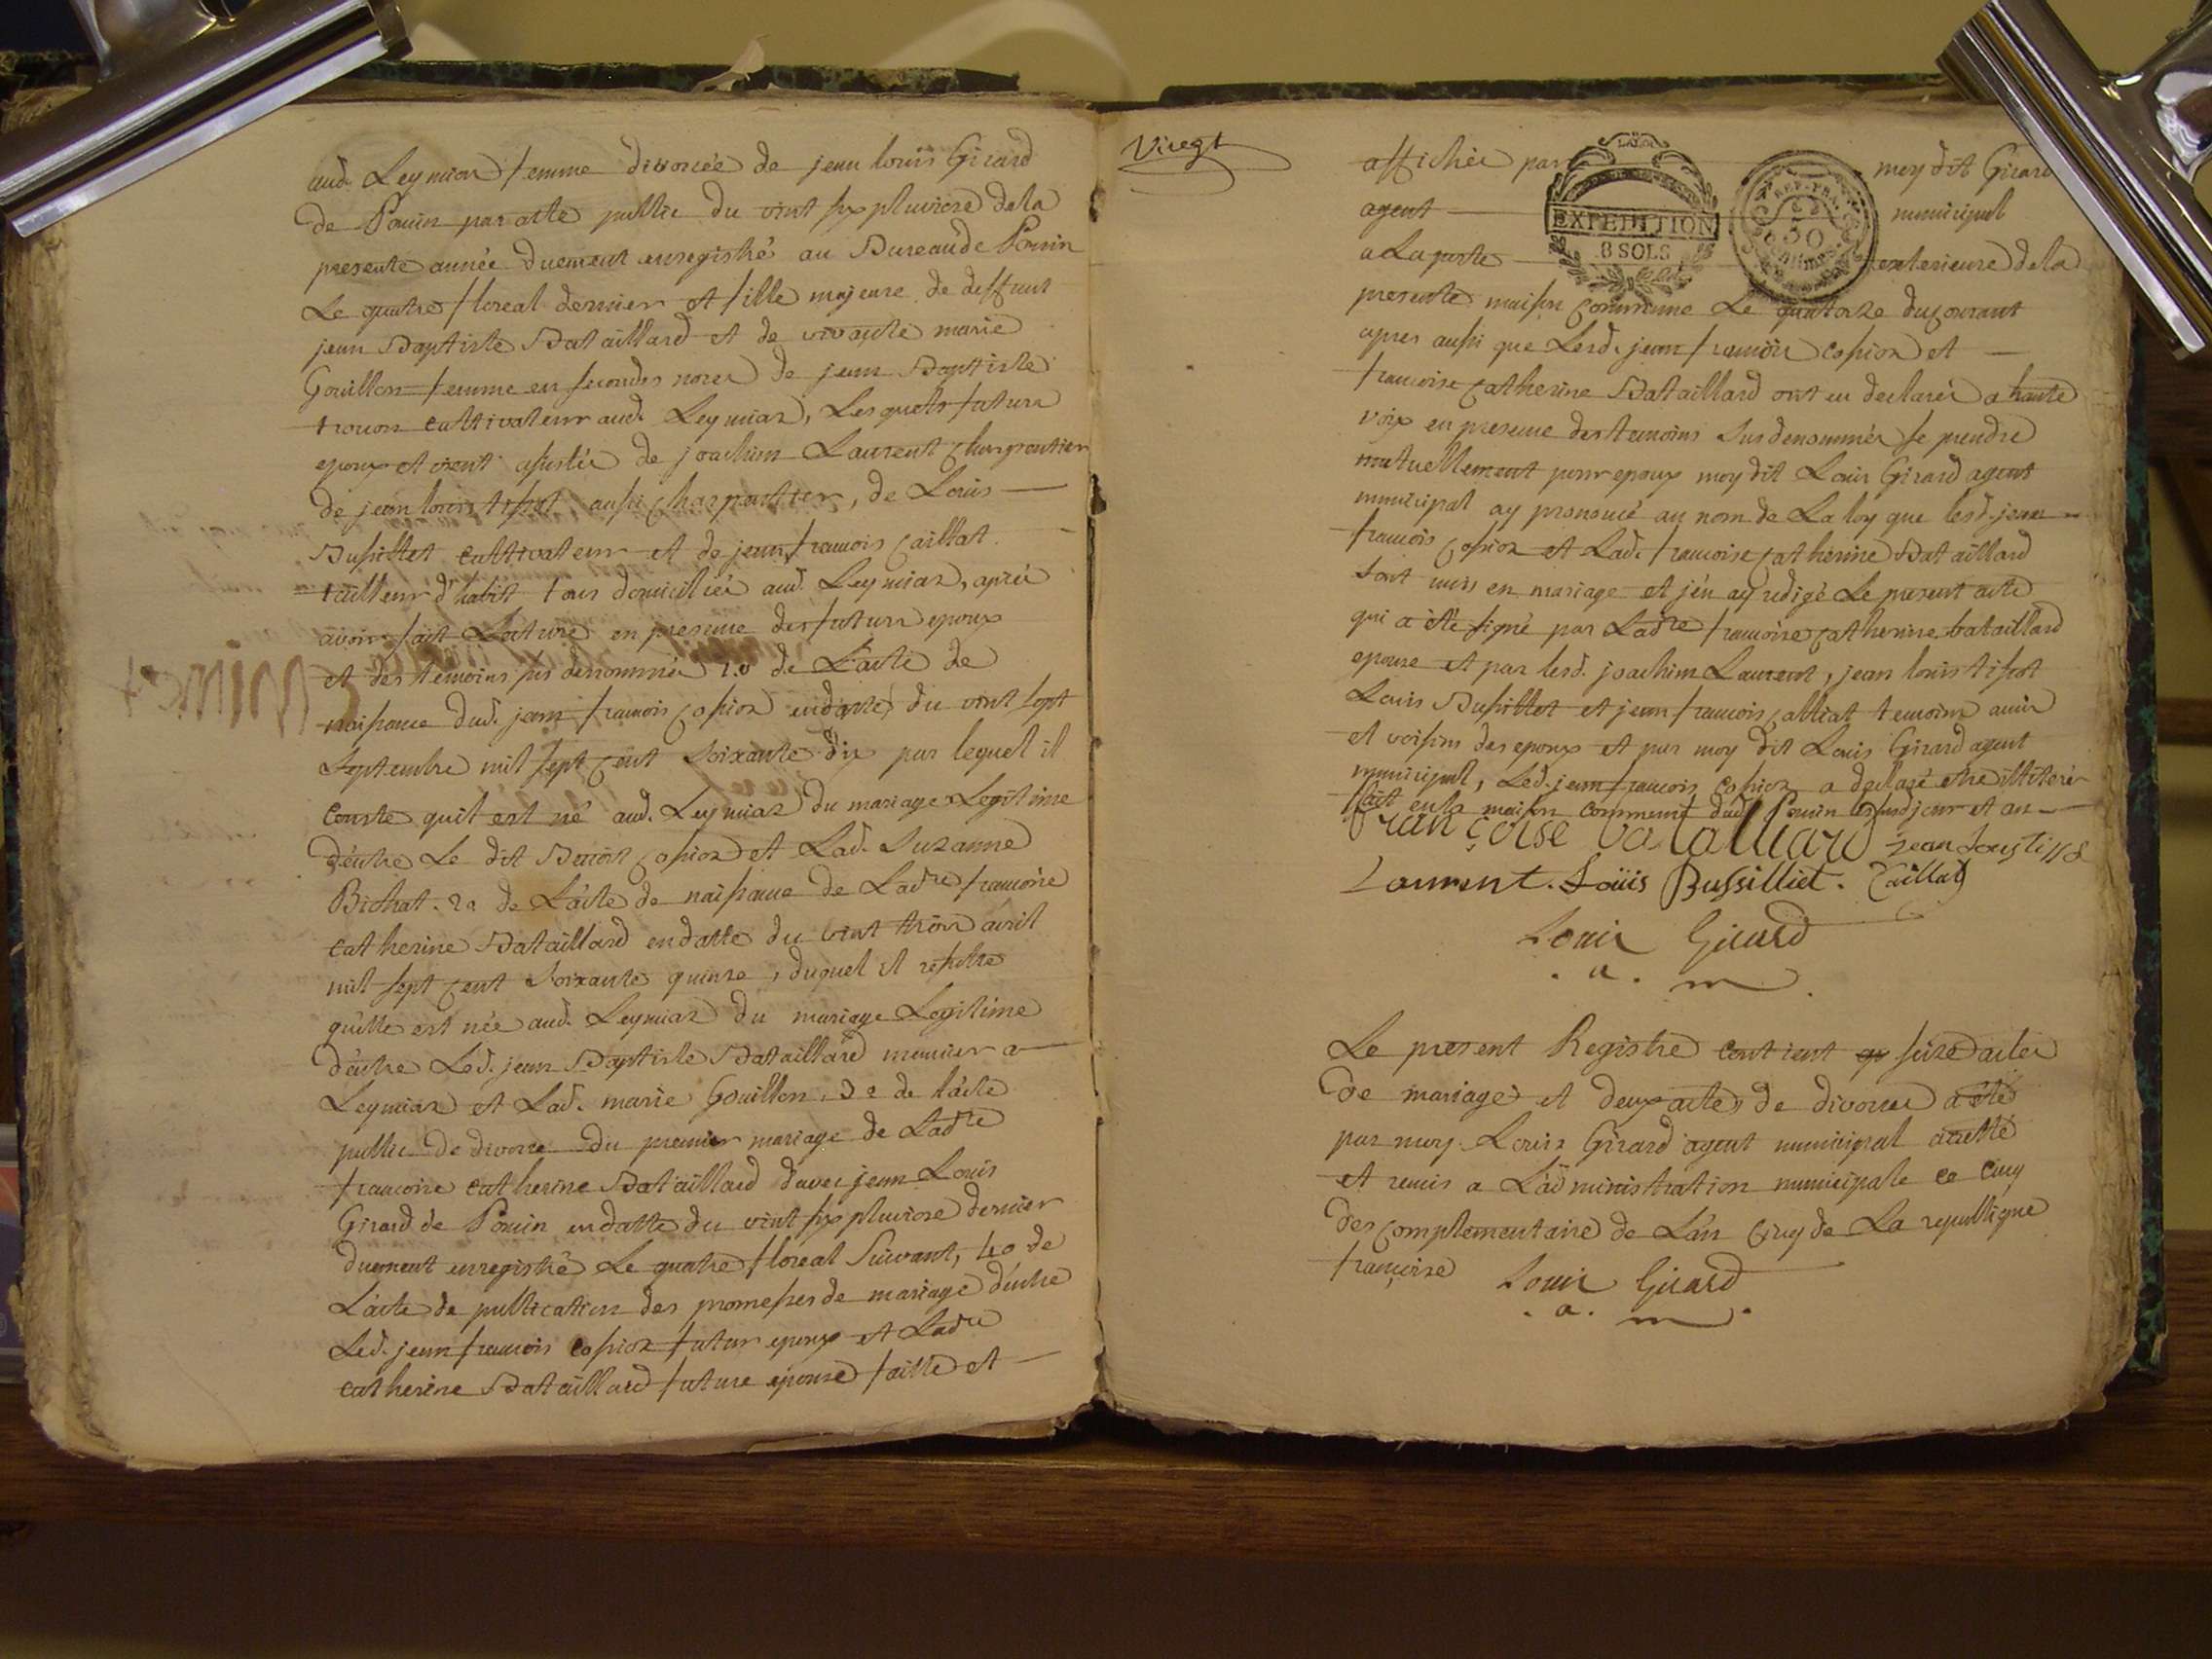 aud. Leymiaz femme divorcée de jean louis Girard
de Poncin par acte public du vint six pluviose de la
presente année duement enregistré au Bureau de Poncin
Le quatre floreal dernier et fille majeure de deffunt
jean Baptiste Bataillard et de vivante marie
Gouillon femme en secondes noces de jean Baptiste
cultivateur aud. Leymiaz, Lesquels futurs
epoux etoient assistés de joachim Laurent charpentier
de jean louis tissot aussi charpentier, de Louis —
Bussillet cultivateur et de jean francois caillat
tailleur d'habit tous domiciliés aud. Leymiaz, après
avoir fait Lecture en presence des futurs epoux
et des temoins sus denommés 1.o de L'acte de
naissance dud. jean francois cossioz endatte du vint sept
septembre mil sept cent soixante dix par lequel il
conste quil est né aud. Leymiaz du mariage Legitime
d'entre Le dit Benoit cossioz et Lad. Suzanne
Bichat. 2o de L'acte de naissance de Ladte francoise
catherine Bataillard endatte du vint trois avril
mil sept cent soixante quinze, duquel il resulte
qu'elle est née aud. Leymiaz du mariage Legitime
d'entre Led. jean Baptiste Bataillard meunier a —
Leymiaz et Lad. marie Gouillon, 3o de l'acte
public de divorce du premier mariage de Ladte
francoise catherine Bataillard d'avec jean Louis
Girard de Poncin endatte du vint six pluviose dernier
duement enregistré Le quatre floreal Suivant, 4o de
L'acte de publication des promesses de mariage d'entre
Led. jean francois cossioz futur epoux et Ladte
catherine Bataillard future épouse faitte et —
Vicegt
affichée par moy dit Girard
agent — municipal
a La porte — exterieure de la
presente maison commune Le quatorze du courant
apres aussi que Lesd. jean francois cossioz et —
francoise catherine Bataillard ont eu declaré a haute
voix en presence des temoins Susdenommés se prendre
mutuellement pour epoux moy dit Louis Girard agent
municipal ay prononcé au nom de La loy que lesd. jean
francois cossioz et Lad. francoise catherine Bataillard
sont unis en mariage et j'en ay redigé Le present acte
qui a été signé par Ladte francoise catherine bataillard
epouse et par lesd. joachim Laurent, jean louis tissot
Louis Bussillet et jean francois calliat temoins amis
et voisins des epoux et par moy dit Louis Girard agent
municipal, Led. jean francois cossioz a declaré etre illiteré
fait en la maison commune dud. Poncin les susd jour et an —
françoise bataillard jean Louis tisso
Laurent. Loüis Bussilliet. Caillat
Louis Girard
. a . m .
EXPEDITION
8 SOLS
REP. FRA.
50
Le present Registre contient seize actes
de mariage et deux actes de divorce a été
par moy Louis Girard agent municipal arretté
et remis a L'administration municipale ce cinq
des complementaire de L'an cinq de La republique
françoise Louis Girard
. a . m .